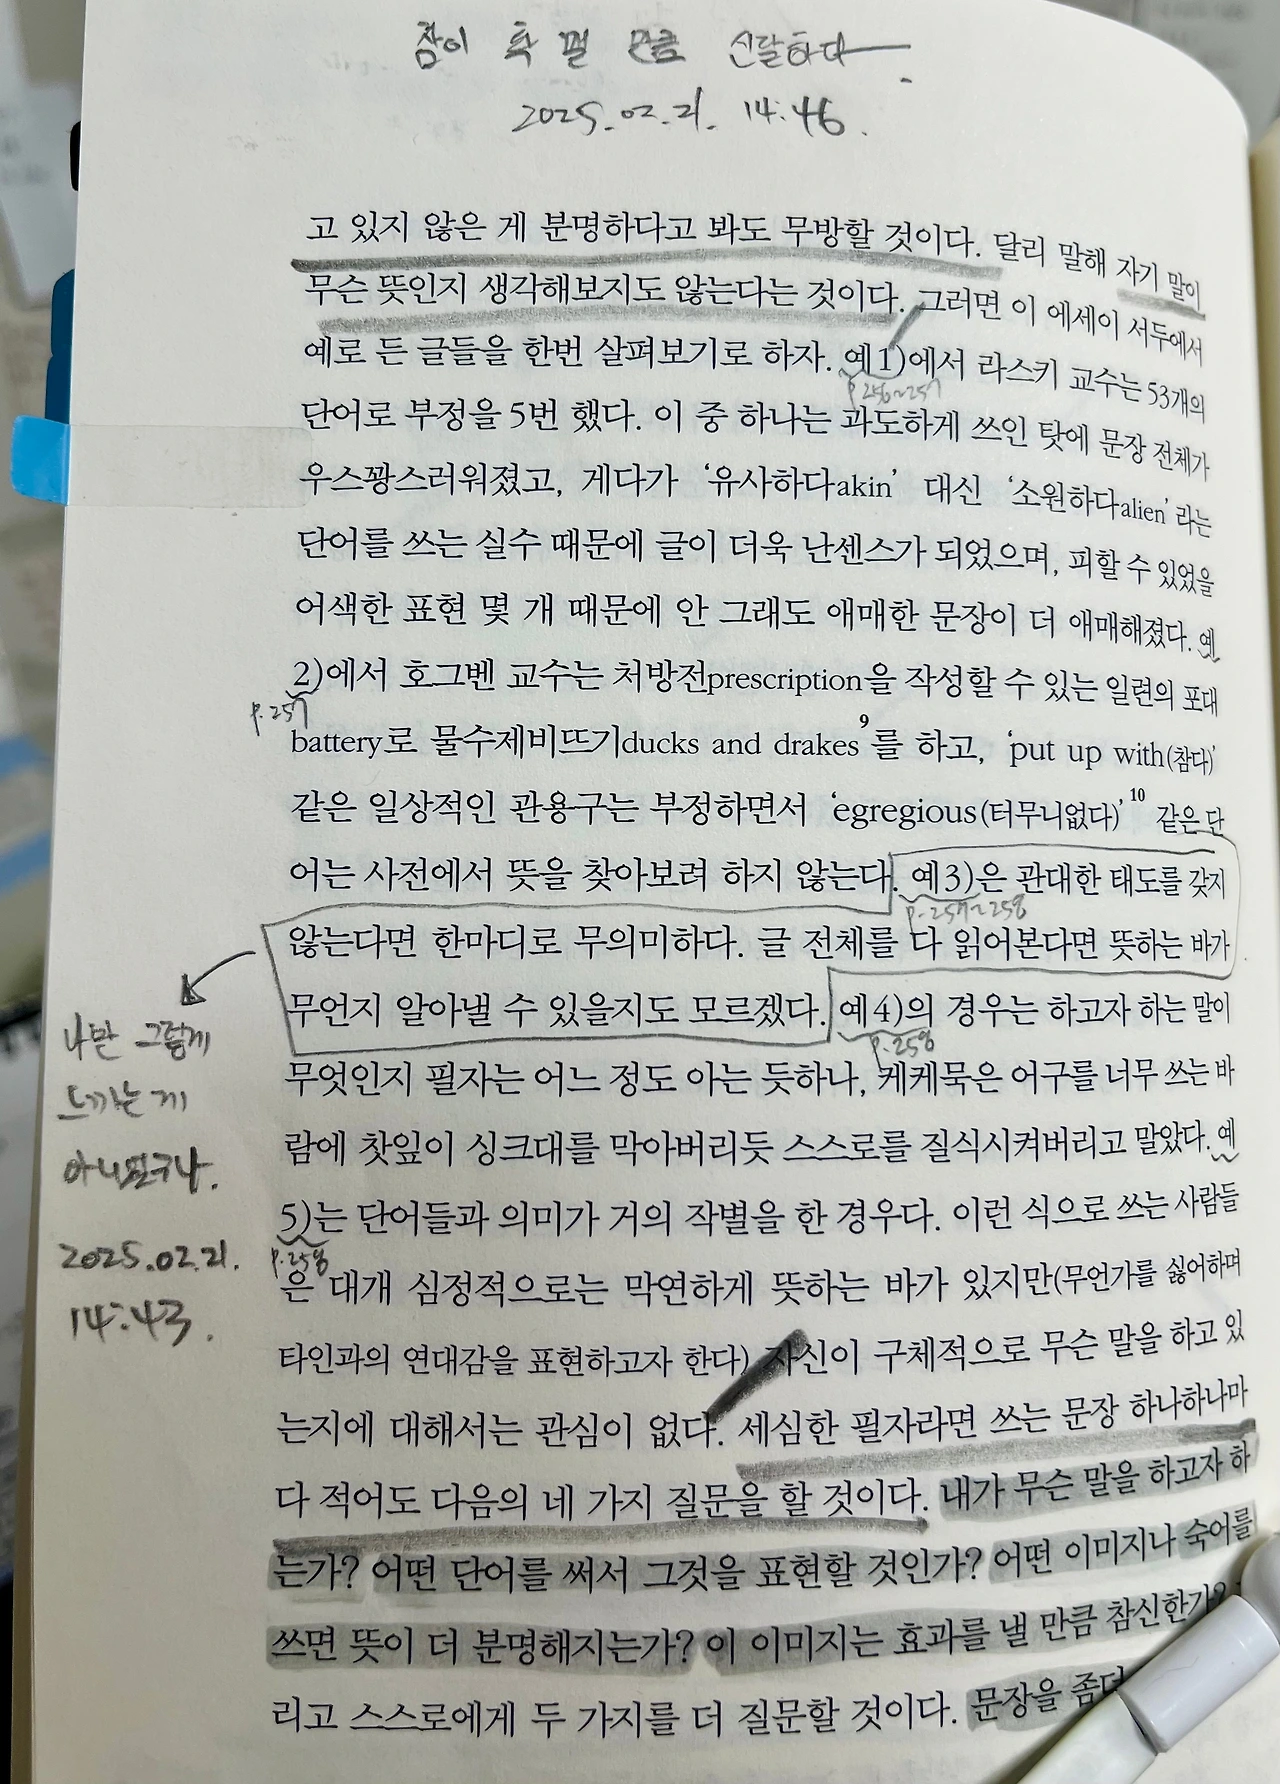 잠이 확 깰 만큼 신랄하다
2025.02.21. 14:46.
고 있지 않은 게 분명하다고 봐도 무방할 것이다. 달리 말해 자기 말이
무슨 뜻인지 생각해보지도 않는다는 것이다. 그러면 이 에세이 서두에서
예로 든 글들을 한번 살펴보기로 하자. 예1)에서 라스키 교수는 53개의
p.256~257
단어로 부정을 5번 했다. 이 중 하나는 과도하게 쓰인 탓에 문장 전체가
우스꽝스러워졌고, 게다가 ‘유사하다akin’ 대신 ‘소원하다alien’라는
단어를 쓰는 실수 때문에 글이 더욱 난센스가 되었으며, 피할 수 있었을
어색한 표현 몇 개 때문에 안 그래도 애매한 문장이 더 애매해졌다. 예
2)에서 호그벤 교수는 처방전prescription을 작성할 수 있는 일련의 포대
p.257
battery로 물수제비뜨기ducks and drakes9를 하고, ‘put up with(참다)’
같은 일상적인 관용구는 부정하면서 ‘egregious(터무니없다)’10 같은 단
어는 사전에서 뜻을 찾아보려 하지 않는다. 예3)은 관대한 태도를 갖지
p.257~258
않는다면 한마디로 무의미하다. 글 전체를 다 읽어본다면 뜻하는 바가
무언지 알아낼 수 있을지도 모르겠다. 예4)의 경우는 하고자 하는 말이
p.258
무엇인지 필자는 어느 정도 아는 듯하나, 케케묵은 어구를 너무 쓰는 바
람에 찻잎이 싱크대를 막아버리듯 스스로를 질식시켜버리고 말았다. 예
5)는 단어들과 의미가 거의 작별을 한 경우다. 이런 식으로 쓰는 사람들
p.258
은 대개 심정적으로는 막연하게 뜻하는 바가 있지만(무언가를 싫어하며
타인과의 연대감을 표현하고자 한다) 자신이 구체적으로 무슨 말을 하고 있
는지에 대해서는 관심이 없다. 세심한 필자라면 쓰는 문장 하나하나마
다 적어도 다음의 네 가지 질문을 할 것이다. 내가 무슨 말을 하고자 하
는가? 어떤 단어를 써서 그것을 표현할 것인가? 어떤 이미지나 숙어를
쓰면 뜻이 더 분명해지는가? 이 이미지는 효과를 낼 만큼 참신한가?
리고 스스로에게 두 가지를 더 질문할 것이다. 문장을 좀더
나만 그렇게
느끼는 게
아니었구나.
2025.02.21.
14:43.